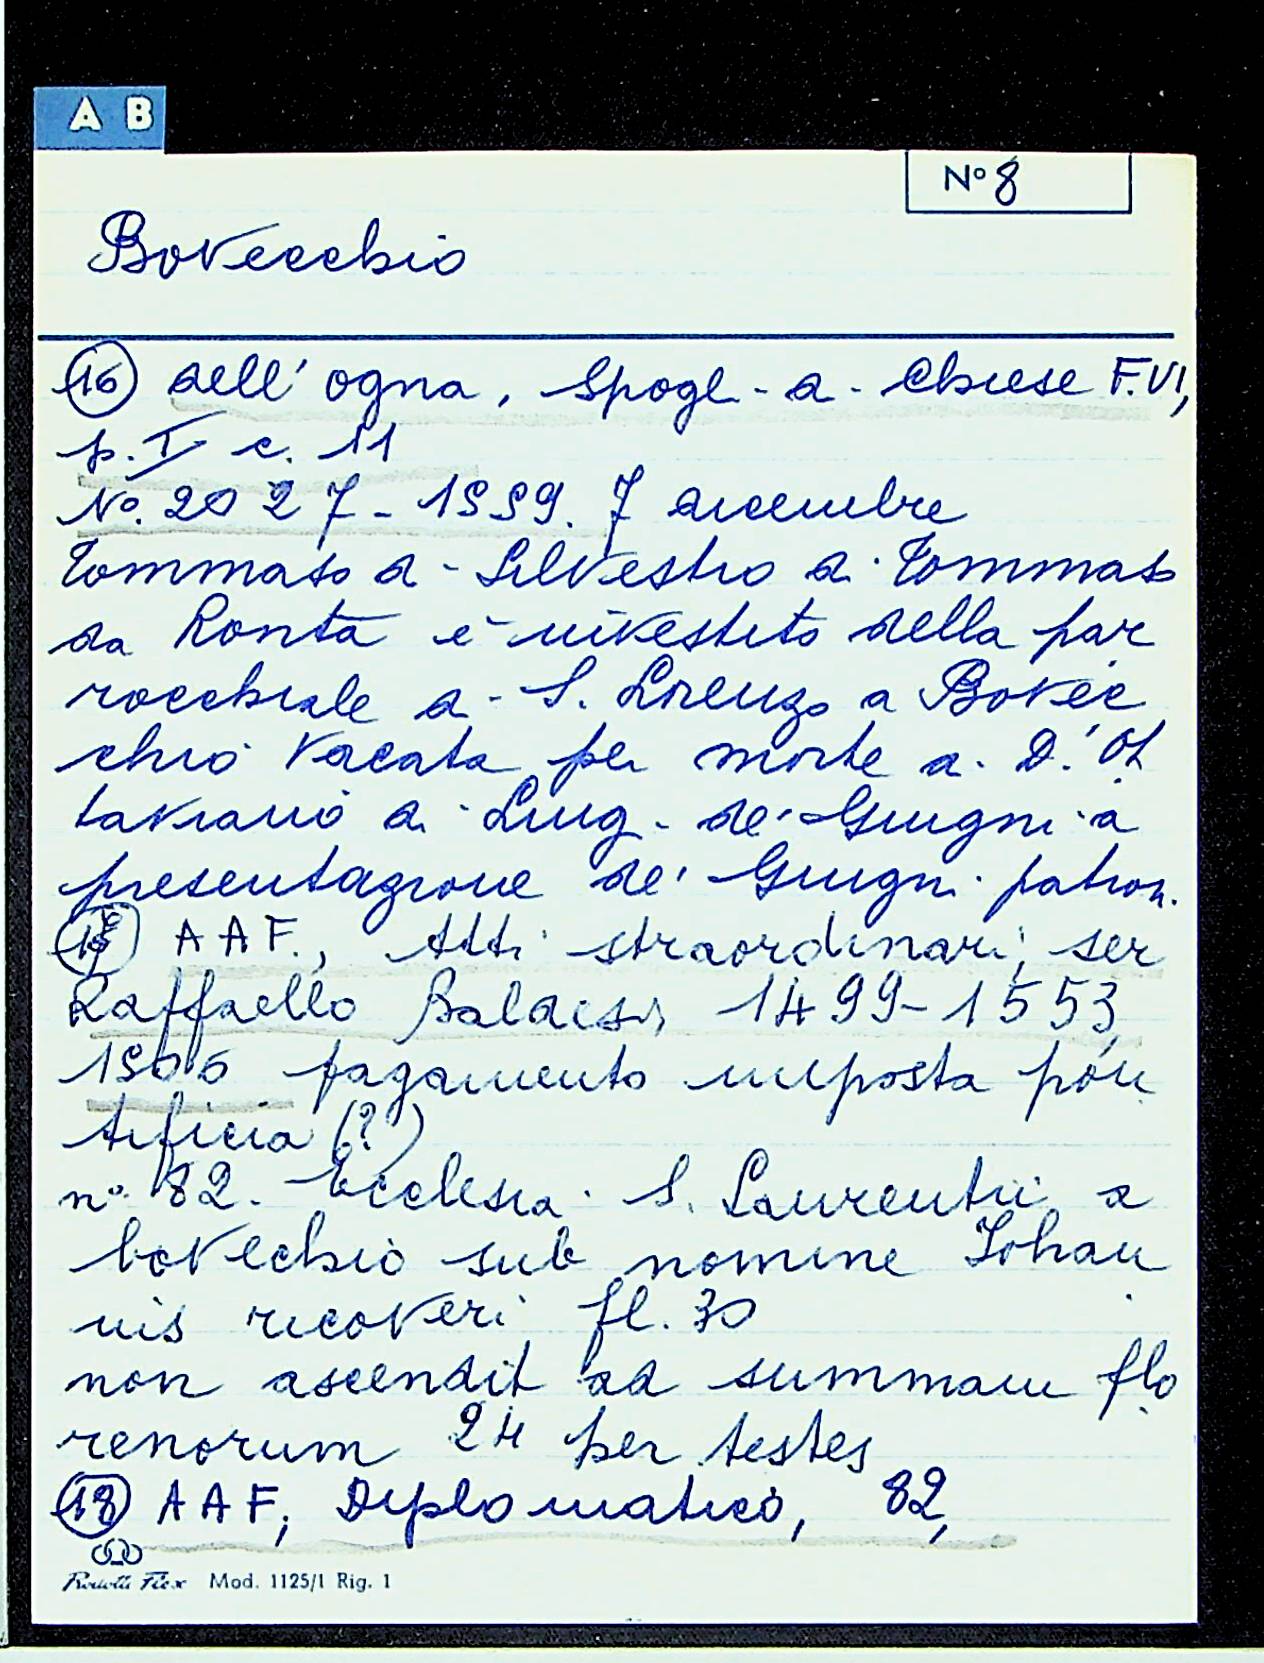 A B
Nº 8
Bovecchio
(16) dell'ogna, Spogl. di Chiese F.VI,
p. I c. 11
Nº. 2027 - 1559. 7 dicembre
Tommaso di Silvestro di Tommaso
da Ronta è investito della par
rocchiale di S. Lorenzo a Bovec
chio vacata per morte di D. Ot
taviano di Luig. de' Giugni a
presentazione de' Giugni patron.
AAF., Atti straordinari, ser
Raffaello Baldesi, 1499-1553,
1506 pagamento imposta pon
tificia (?)
nº 82. Ecclesia S. Laurentii a
bovechio sub nomine Johan
nis ricoveri fl. 30
non ascendit ad summam flo
renorum 24 per testes
(18) AAF, Diplomatico, 82,
Flex Mod. 1125/1 Rig. 1